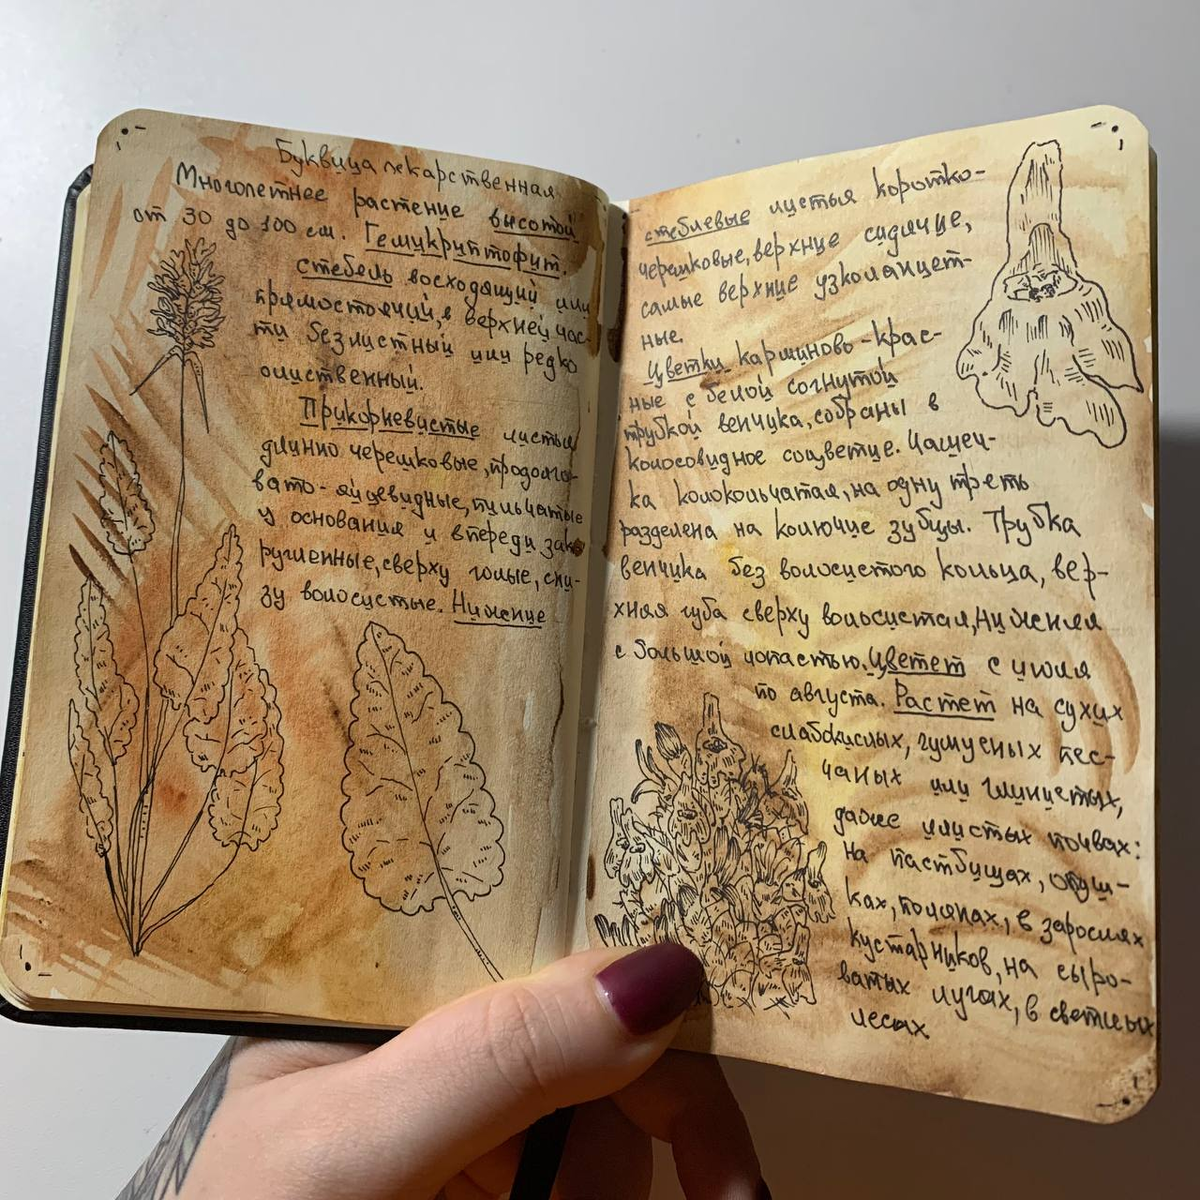 Буквица лекарственная
Многолетнее растение высотой
от 30 до 100 см. Гемикриптофит.
стебель восходящий или
прямостоячий, в верхней час-
ти безлистный или редко
олиственный.
Прикорневистые листья
длинно черешковые, продолго-
вато-яйцевидные, пильчатые
у основания и впереди зак-
ругленные, сверху голые, сни-
зу волосистые. Нижние
стеблевые листья коротко-
черешковые, верхние сидячие,
самые верхние узколанцет-
ные.
Цветки карминово-крас-
ные с белой согнутой
трубкой венчика, собраны в
колосовидное соцветие. Чашеч-
ка колокольчатая, на одну треть
разделена на колючие зубцы. Трубка
венчика без волосистого кольца, вер-
хняя губа сверху волосистая, нижняя
с большой лопастью. Цветет с июля
по августа. Растет на сухих
слабокислых, гумусных пес-
чаных или глинистых,
даже илистых почвах:
на пастбищах, опуш-
ках, полянах, в зарослях
кустарников, на сыро-
ватых лугах, в светлых
лесах